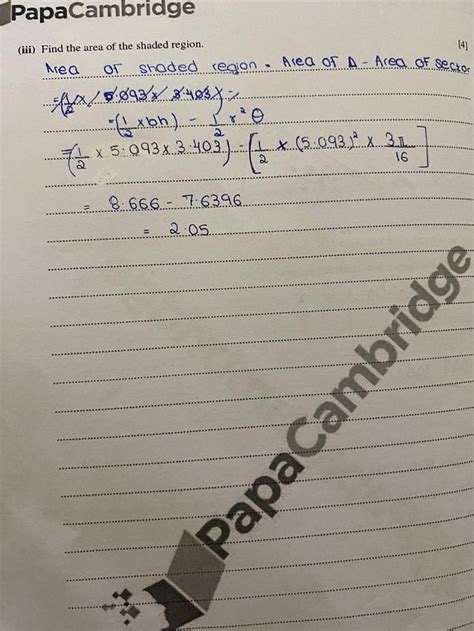 PapaCambridge
(iii) Find the area of the shaded region. [4]
Area of shaded region = Area of Δ - Area of sector
=(1/2 x 5.093 x 3.403) =
=(1/2 xbh) - 1/2 r²θ
=(1/2 x 5.093 x 3.403) - [1/2 x (5.093)² x 3π/16]
= 8.666 - 7.6396
= 2.05
PapaCambridge